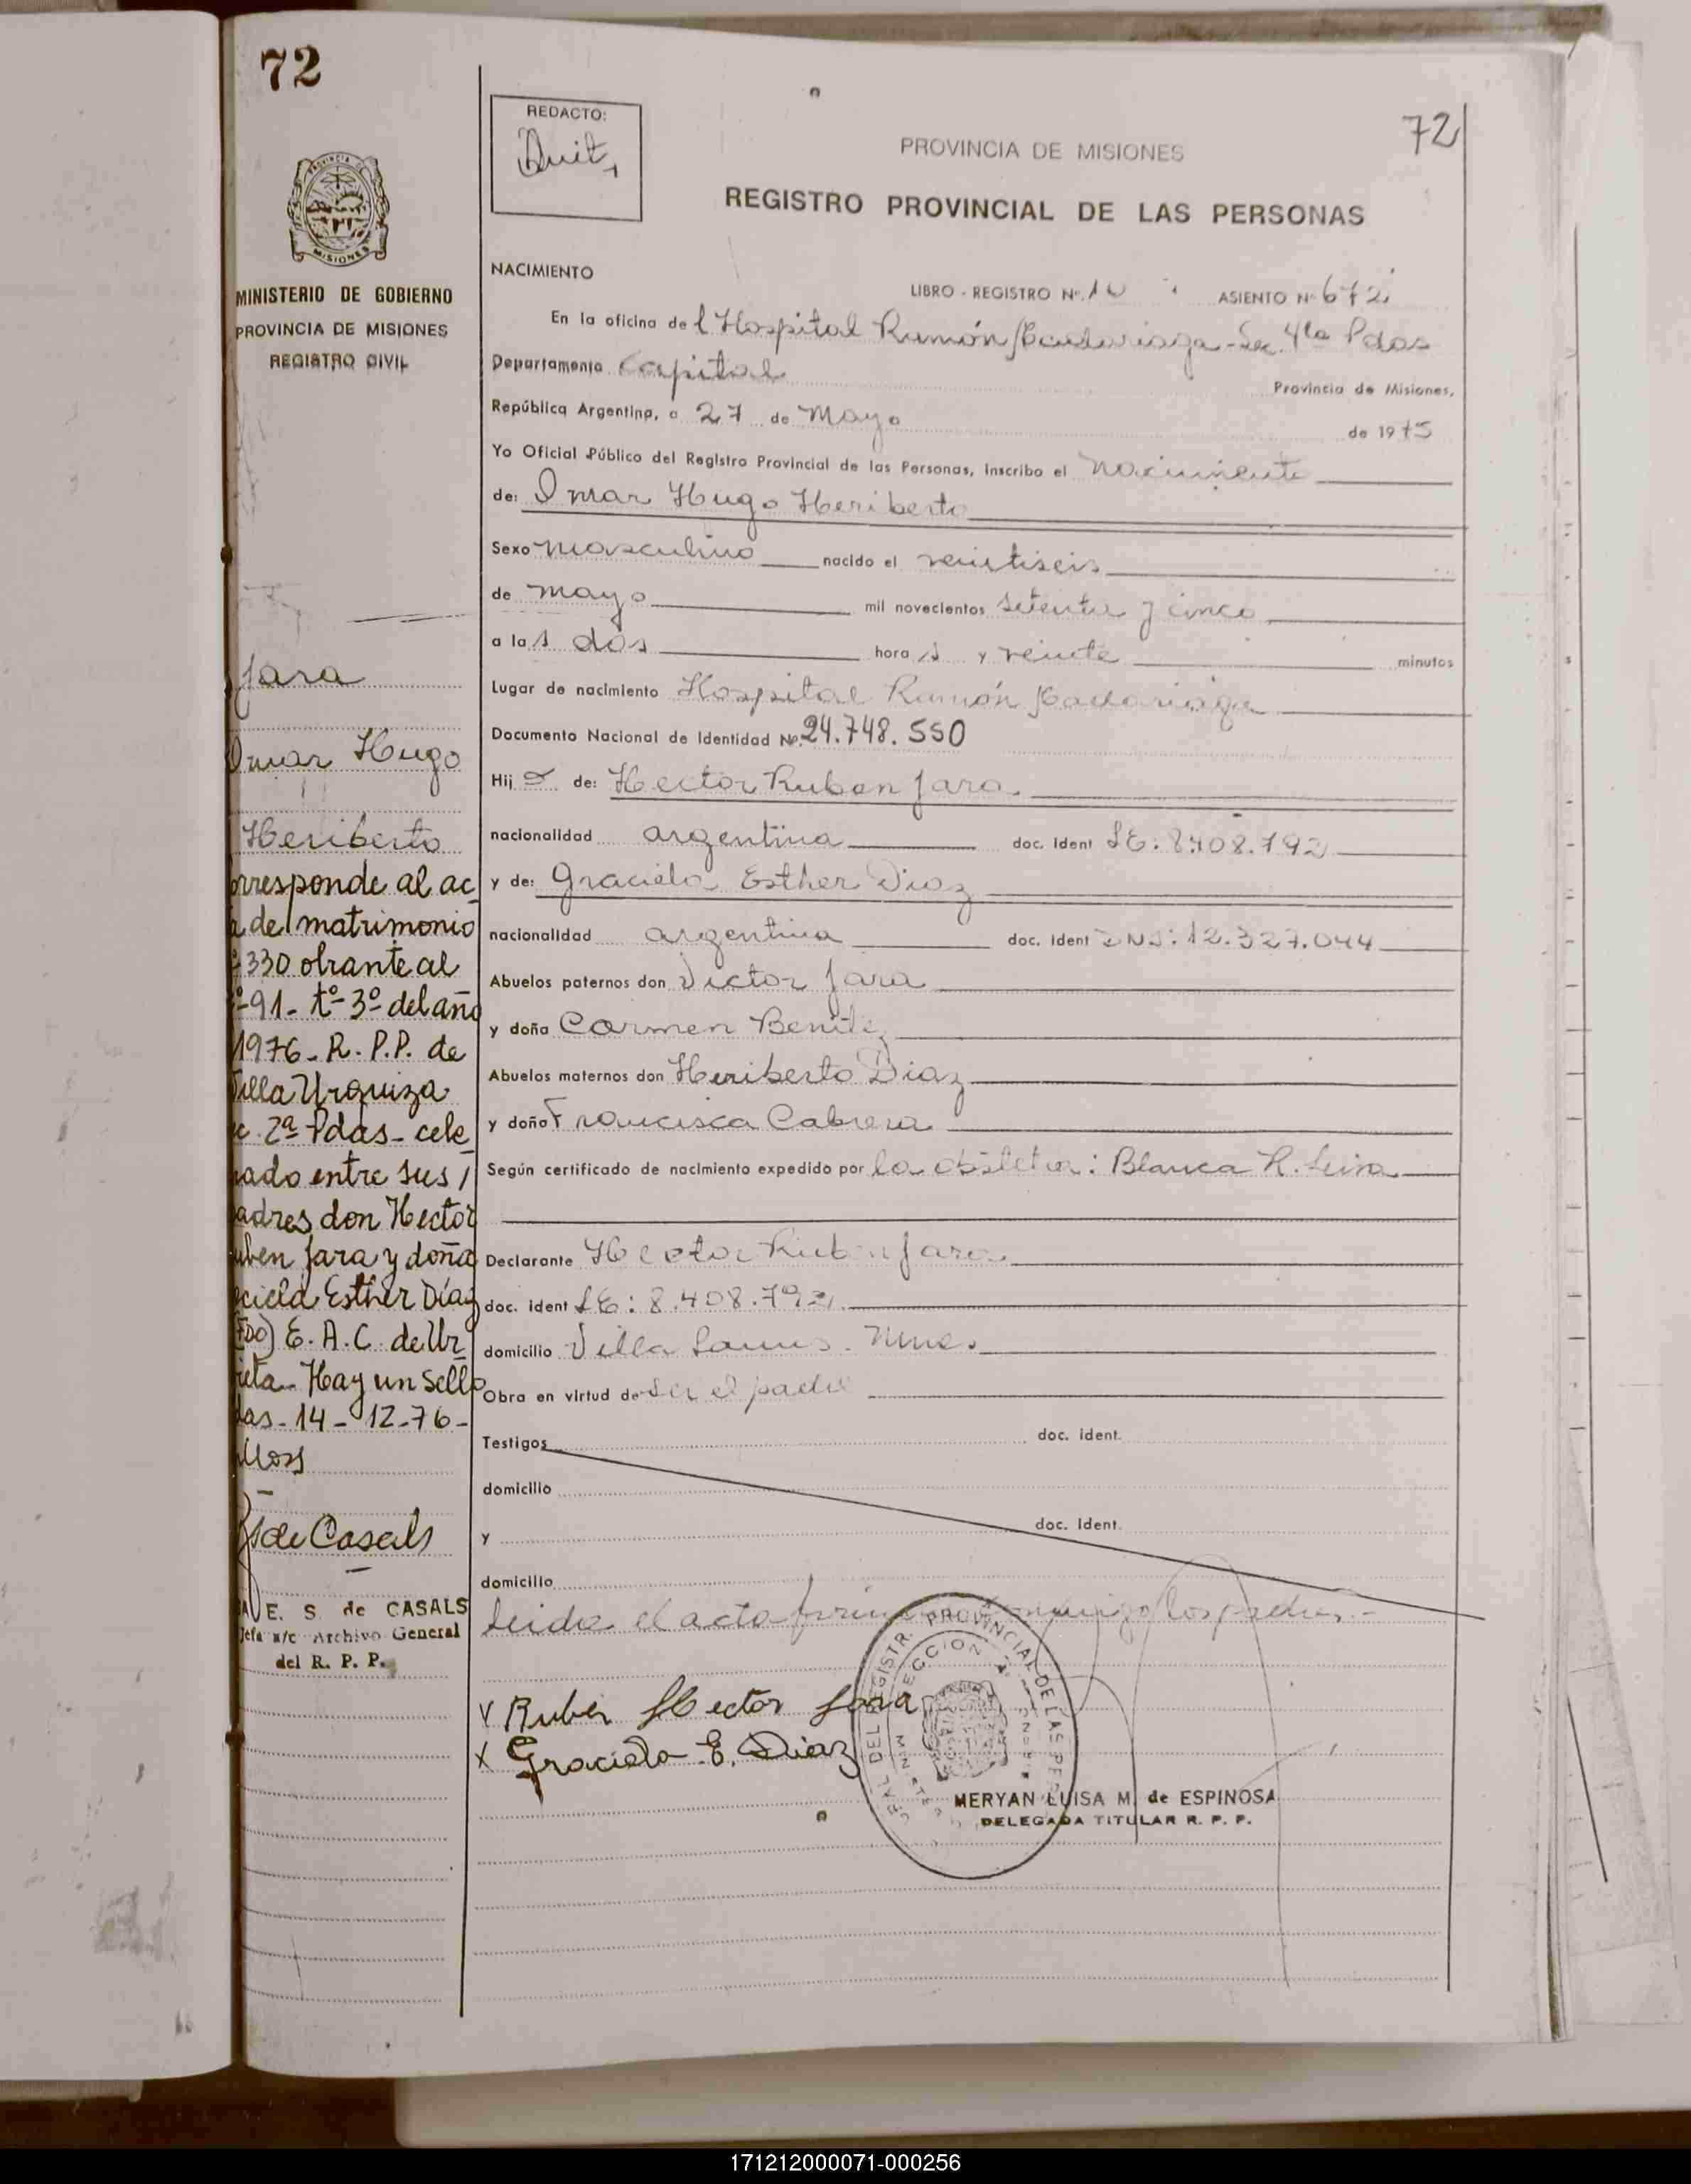 72
PROVINCIA DE
MISIONES
MINISTERIO DE GOBIERNO
PROVINCIA DE MISIONES
REGISTRO CIVIL
Jara
Omar Hugo
Heriberto
orresponde al ac
a de matrimonio
330 obrante al
91- tº 3º del año
1976- R. P.P. de
Villa Urquiza
c. 2ª Pdas- cele
rado entre sus
adres don Hector
uben Jara y doña
aciela Esther Díaz
(FDO) E. A. C. de Ur
ieta- Hay un sello
das- 14- 12-76-
de Casals
E. S. de CASALS
Jefa a/c Archivo General
del R. P. P.
REDACTO:
72
PROVINCIA DE MISIONES
REGISTRO PROVINCIAL DE LAS PERSONAS
NACIMIENTO
LIBRO - REGISTRO Nº. 10 ASIENTO Nº 672
En la oficina del Hospital Ramón Madariaga - Sec. 4ta Pdas
Departamento Capital Provincia de Misiones,
República Argentina, a 27 de Mayo de 1975
Yo Oficial Público del Registro Provincial de las Personas, inscribo el nacimiento
de: Omar Hugo Heriberto
Sexo masculino nacido el veintiseis
de mayo mil novecientos setenta y cinco
a las dos horas y veinte minutos
Lugar de nacimiento Hospital Ramón Madariaga
Documento Nacional de Identidad Nº. 24.748.550
Hijo de: Hector Ruben Jara
nacionalidad argentina doc. ident LE: 8.408.792
y de: Graciela Esther Diaz
nacionalidad argentina doc. ident DNI: 12.327.044
Abuelos paternos don Victor Jara
y doña Carmen Benitez
Abuelos maternos don Heriberto Diaz
y doña Francisca Cabrera
Según certificado de nacimiento expedido por la obstetra: Blanca R. Leiva
Declarante Hector Ruben Jara
doc. ident LE: 8.408.792
domicilio Villa Lanus. Mnes.
Obra en virtud de ser el padre
Testigos doc. ident.
domicilio
y doc. ident.
domicilio
Leida el acta firman conmigo los padres.-
x Ruben Hector Jara
x Graciela E. Diaz
MERYAN LUISA M. de ESPINOSA
DELEGADA TITULAR R. P. P.
171212000071-000256